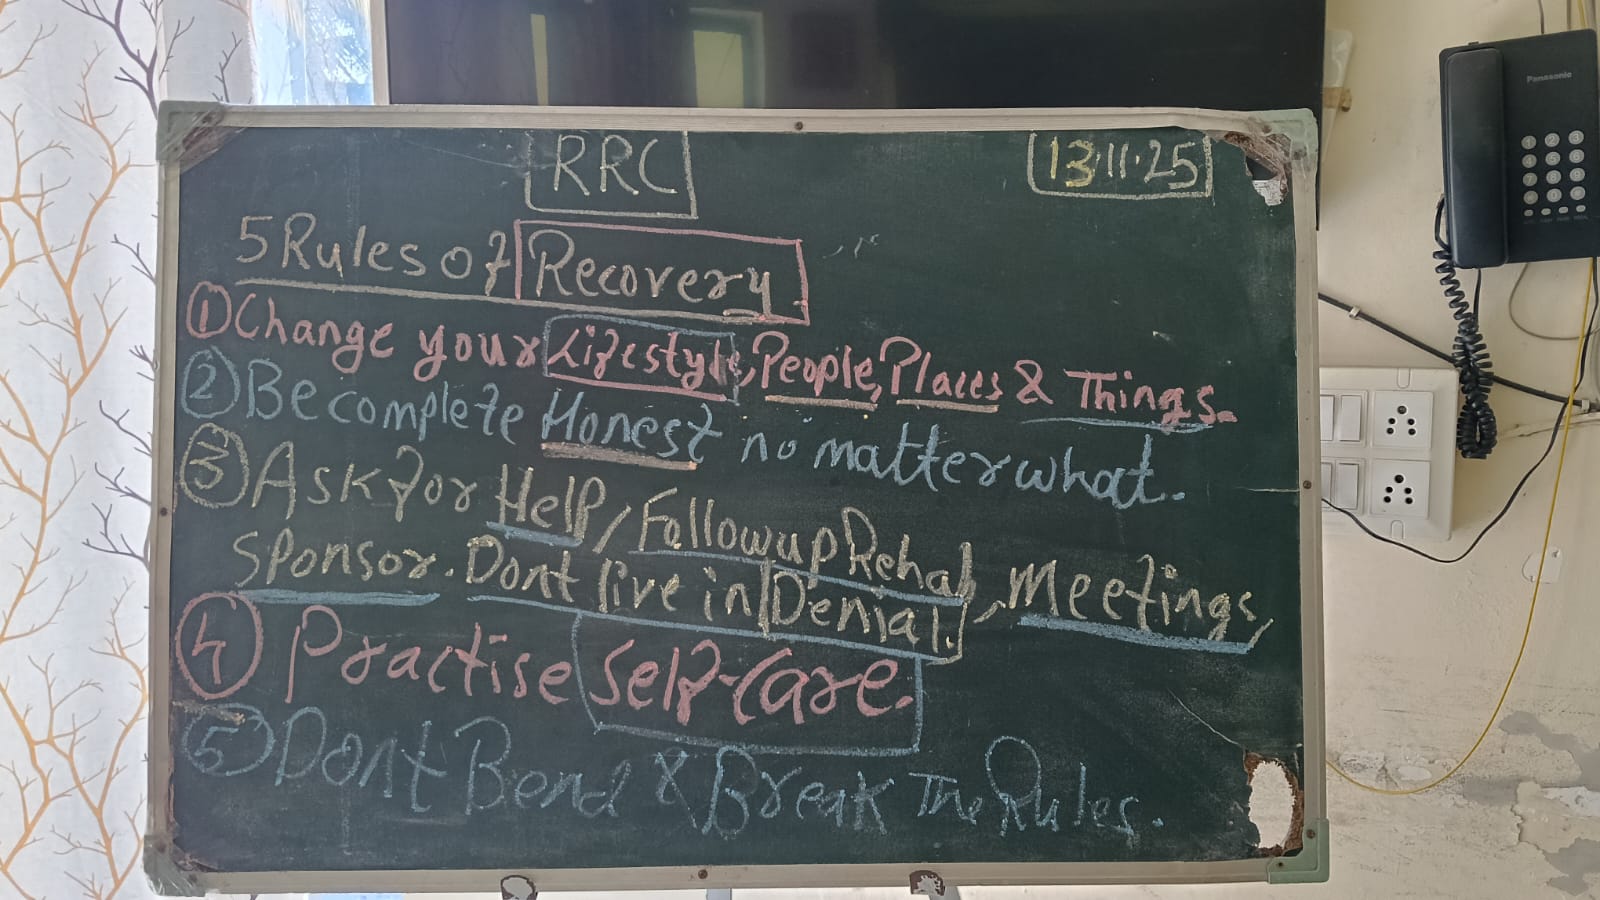 RRC
13.11.25
5 Rules of Recovery
① Change your Lifestyle, People, Places & Things.
② Be complete Honest no matter what.
③ Ask for Help/Followup Rehab, Meetings,
Sponsor. Dont live in Denial.
④ Practise Self-Care.
⑤ Dont Bend & Break The Rules.
Panasonic
1 2 3
4 5 6
7 8 9
0